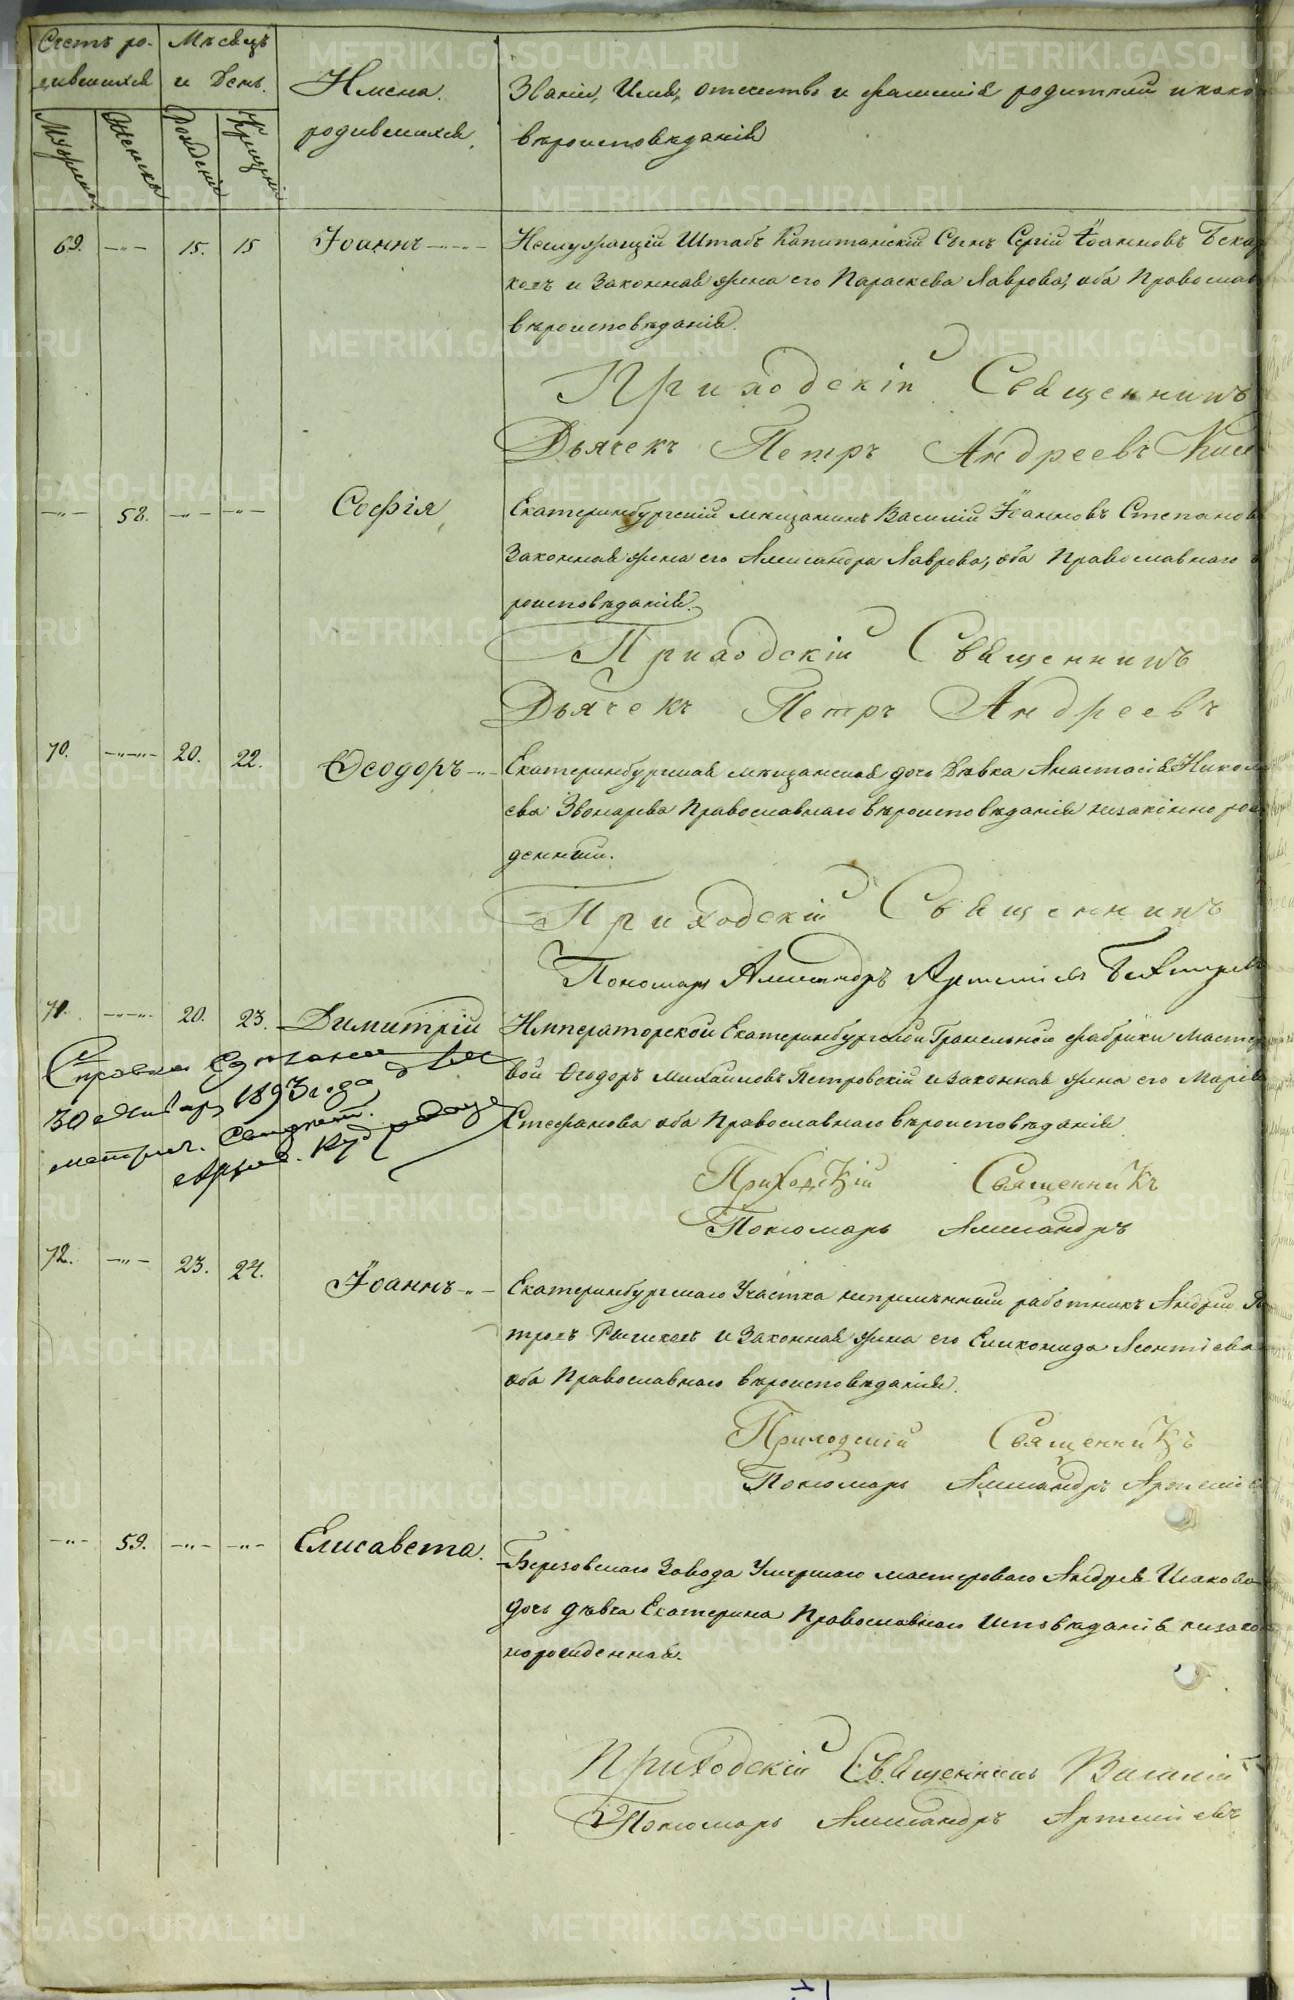 Счетъ ро-
дившихся
Мѣсяцъ
и День.
Мужеска
Женска
Рожденія
Крещенія
Имена
родившихся.
Званіе, Имя, отчество и фамилія родителей и како
вѣроисповѣданія
69. —„— 15. 15 Іоаннъ
Неслужащій Штабъ Капитанскій Сынъ Сергій Іоанновъ
и Законная жена его Параскева Лаврова, оба Православ
вѣроисповѣданія.
Приходскій Священникъ
Дьячекъ Петръ Андреевъ
—„— 58. —„— —„— Софія
Екатеринбургскій мѣщанинъ Василій Іоанновъ Степанов
Законная жена его Александра Лаврова, оба Православнаго
роисповѣданія.
Приходскій Священникъ
Дьячекъ Петръ Андреевъ
70. —„— 20. 22. Ѳеодоръ
Екатеринбургская мѣщанская дочь Дѣвка Анастасія Никола
ева Звонарева Православнаго вѣроисповѣданія незаконно рож
денный.
Приходскій Священникъ
Пономарь Александръ Артеміевъ
71. —„— 20. 23. Димитрій
Императорской Екатеринбургской Гранильной фабрики Мастер
вой Ѳеодоръ Михайловъ Петровскій и законная жена его Марія
Стефанова оба Православнаго вѣроисповѣданія
Справка Сдѣлана
30 Января 1893 года
Приходскій Священникъ
Пономарь Александръ
72. —„— 23. 24. Іоаннъ
Екатеринбургскаго Участка непремѣнный работникъ Андрей Пе
тровъ и Законная жена его Гликонида Леонтіева
оба Православнаго вѣроисповѣданія.
Приходскій Священникъ
Пономарь Александръ Артеміе
—„— 59. —„— —„— Елисавета.
Березовскаго Завода Умершаго мастероваго Андрея Исакова
дочь дѣвка Екатерина Православнаго Исповѣданія незакон
норожденная.
Приходскій Священникъ Василій
Пономарь Александръ Артеміевъ
METRIKI.GASO-URAL.RU